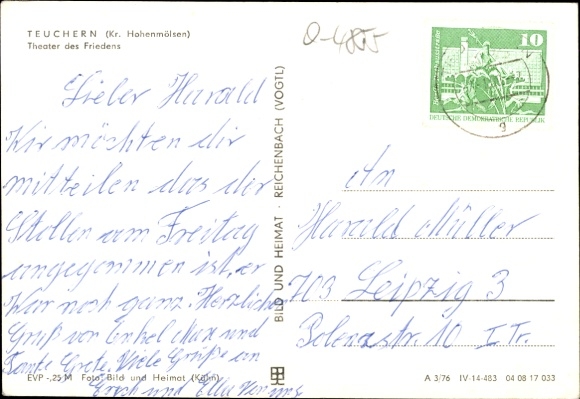 TEUCHERN (Kr. Hohenmölsen)
Theater des Friedens
Lieber Harald
Wir möchten dir
mitteilen das der
Stollen am Freitag
angegommen ist, er
War noch ganz. Herzliche
Gruß von Onkel Max und
Tante Grete. Viele Grüße an
Erich und Ella
EVP -,25 M Foto: Bild und Heimat (Kühn)
BILD UND HEIMAT · REICHENBACH (VOGTL)
10
DEUTSCHE DEMOKRATISCHE REPUBLIK
An
Harald Müller
703 Leipzig 3
str. 10 I. Tr.
A 3/76 IV-14-483 04 08 17 033